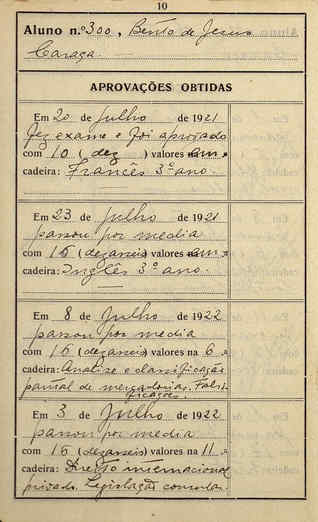 10
Aluno n.º 300, Bento de Jesus
Caraça.
APROVAÇÕES OBTIDAS
Em 20 de Julho de 1921
fez exame e foi aprovado
com 10 (dez) valores em
cadeira: Francês 3º ano.
Em 23 de Julho de 1921
passou por media
com 16 (dezasseis) valores em
cadeira: Inglês 3º ano.
Em 8 de Julho de 1922
passou por media
com 16 (dezasseis) valores na 6.ª
cadeira: Analise e classificação
pautal de mercadorias. Falsi-
ficações.
Em 3 de Julho de 1922
passou por media
com 16 (dezasseis) valores na 11.ª
cadeira: Direito internacional
privado. Legislação consular.